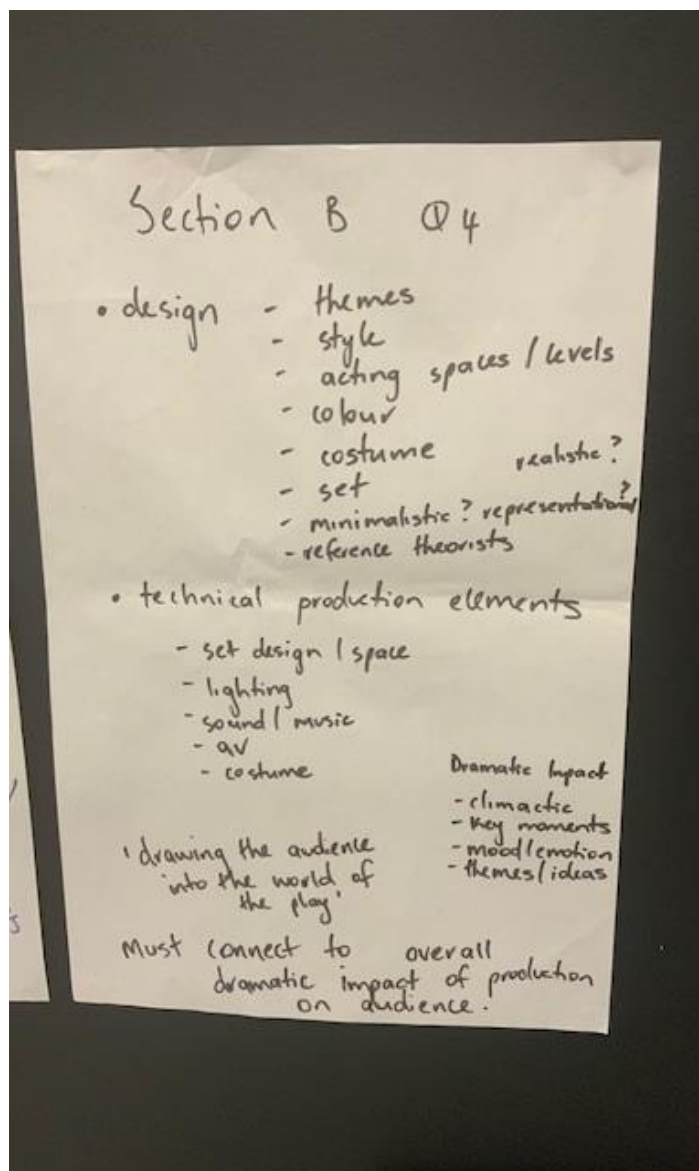 Section B Q4
• design - themes
- style
- acting spaces / levels
- colour
- costume realistic?
- set
- minimalistic? representational?
- reference theorists
• technical production elements
- set design / space
- lighting
- sound / music
- av
- costume
Dramatic Impact
- climactic
- key moments
- mood/emotion
- themes/ideas
'drawing the audience
into the world of
the play'
Must connect to overall
dramatic impact of production
on audience.